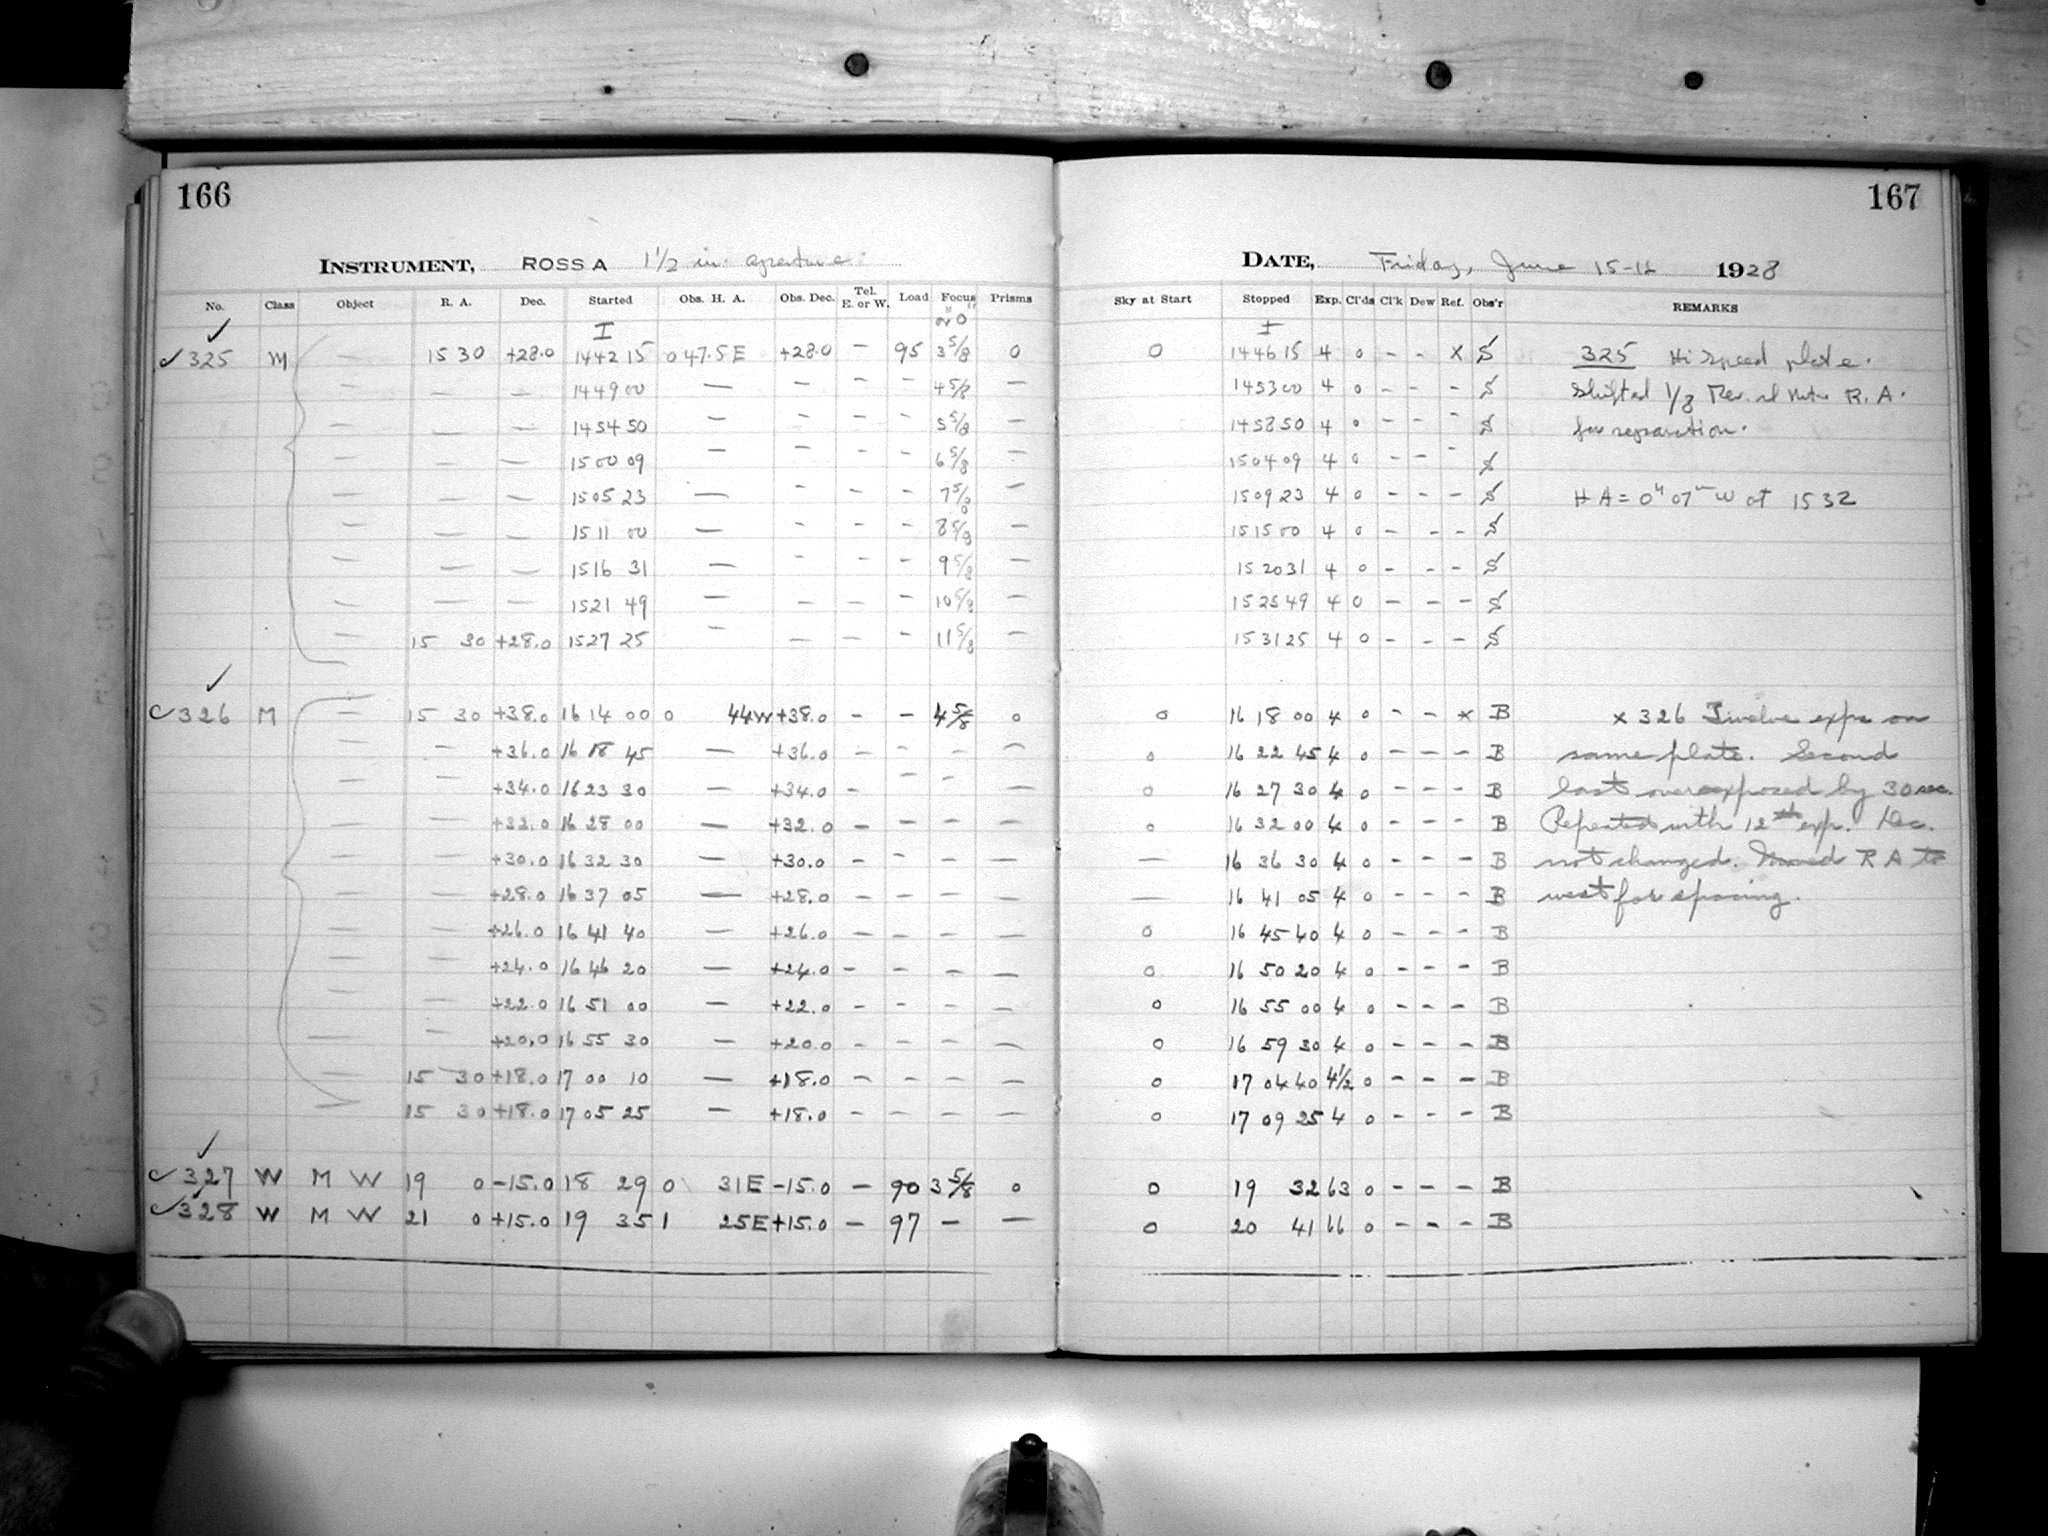 166
INSTRUMENT, ROSS A 1½ in. aperture.
No. Class Object R. A. Dec. Started Obs. H. A. Obs. Dec. Tel. E. or W. Load Focus Prisms
I
✓325 M — 15 30 +28.0 14 42 15 0 47.5 E +28.0 — 95 3 5/8 0
— — — 14 49 00 — — — — 4 5/8 —
— — — 14 54 50 — — — — 5 5/8 —
— — — 15 00 09 — — — — 6 5/8 —
— — — 15 05 23 — — — — 7 5/8 —
— — — 15 11 00 — — — — 8 5/8 —
— — — 15 16 31 — — — — 9 5/8 —
— — — 15 21 49 — — — — 10 5/8 —
— 15 30 +28.0 15 27 25 — — — — 11 5/8 —
✓326 M — 15 30 +38.0 16 14 00 0 44 W +38.0 — — 4 5/8 0
— — +36.0 16 18 45 — +36.0 — — — —
— — +34.0 16 23 30 — +34.0 — — — —
— — +32.0 16 28 00 — +32.0 — — — —
— — +30.0 16 32 30 — +30.0 — — — —
— — +28.0 16 37 05 — +28.0 — — — —
— — +26.0 16 41 40 — +26.0 — — — —
— — +24.0 16 46 20 — +24.0 — — — —
— — +22.0 16 51 00 — +22.0 — — — —
— — +20.0 16 55 30 — +20.0 — — — —
— 15 30 +18.0 17 00 10 — +18.0 — — — —
— 15 30 +18.0 17 05 25 — +18.0 — — — —
✓327 W M W 19 0 -15.0 18 29 0 31 E -15.0 — 90 3 5/8 0
✓328 W M W 21 0 +15.0 19 35 1 25 E +15.0 — 97 — —
167
DATE, Friday, June 15-16 1928
Sky at Start Stopped Exp. Cl'ds Cl'k Dew Ref. Obs'r REMARKS
I
0 14 46 15 4 0 - - x S 325 Hi Speed plate.
14 53 00 4 0 - - - S Shifted 1/8 Rev. R. A.
14 58 50 4 0 - - - S for separation.
15 04 09 4 0 - - - S
15 09 23 4 0 - - - S H A = 0h 07m W at 15 32
15 15 00 4 0 - - - S
15 20 31 4 0 - - - S
15 25 49 4 0 - - - S
15 31 25 4 0 - - - S
0 16 18 00 4 0 - - x B x 326 Twelve exps on
0 16 22 45 4 0 - - - B same plate. Second
0 16 27 30 4 0 - - - B last overexposed by 30 sec.
0 16 32 00 4 0 - - - B Repeated with 12th exp. Dec.
— 16 36 30 4 0 - - - B not changed. Moved R A to
— 16 41 05 4 0 - - - B west for spacing.
0 16 45 40 4 0 - - - B
0 16 50 20 4 0 - - - B
0 16 55 00 4 0 - - - B
0 16 59 30 4 0 - - - B
0 17 04 40 4½ 0 - - - B
0 17 09 25 4 0 - - - B
0 19 32 63 0 - - - B
0 20 41 66 0 - - - B